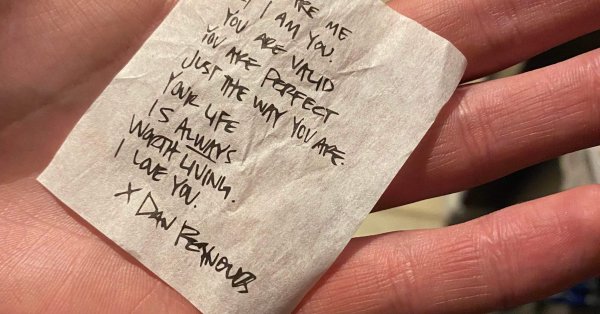 ARE ME
I AM YOU.
YOU ARE VALID
YOU ARE PERFECT
JUST THE WAY YOU ARE.
YOUR LIFE
IS ALWAYS
WORTH LIVING.
I LOVE YOU.
X DAN REYNOLDS